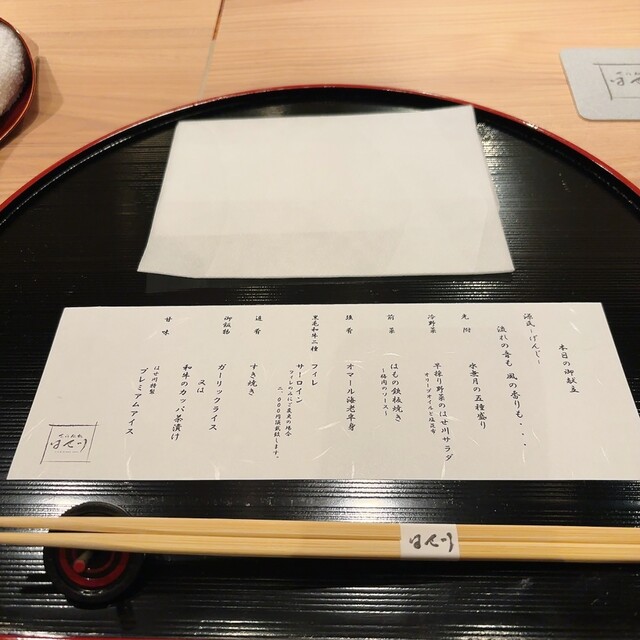 本日の御献立
源氏―げんじ―
流れの音も 風の香りも・・・
先附
水無月の五種盛り
冷野菜
早採り野菜のはせ川サラダ
オリーブオイルと塩昆布
前菜
はもの鉄板焼き
〜梅肉のソース〜
強肴
オマール海老半身
黒毛和牛二種
フィレ
サーロイン
フィレのみにご変更の場合
二,〇〇〇円頂戴致します。
進肴
すき焼き
御飯物
ガーリックライス
又は
和牛のカッパ茶漬け
甘味
はせ川特製
プレミアムアイス
はせ川
はせ川